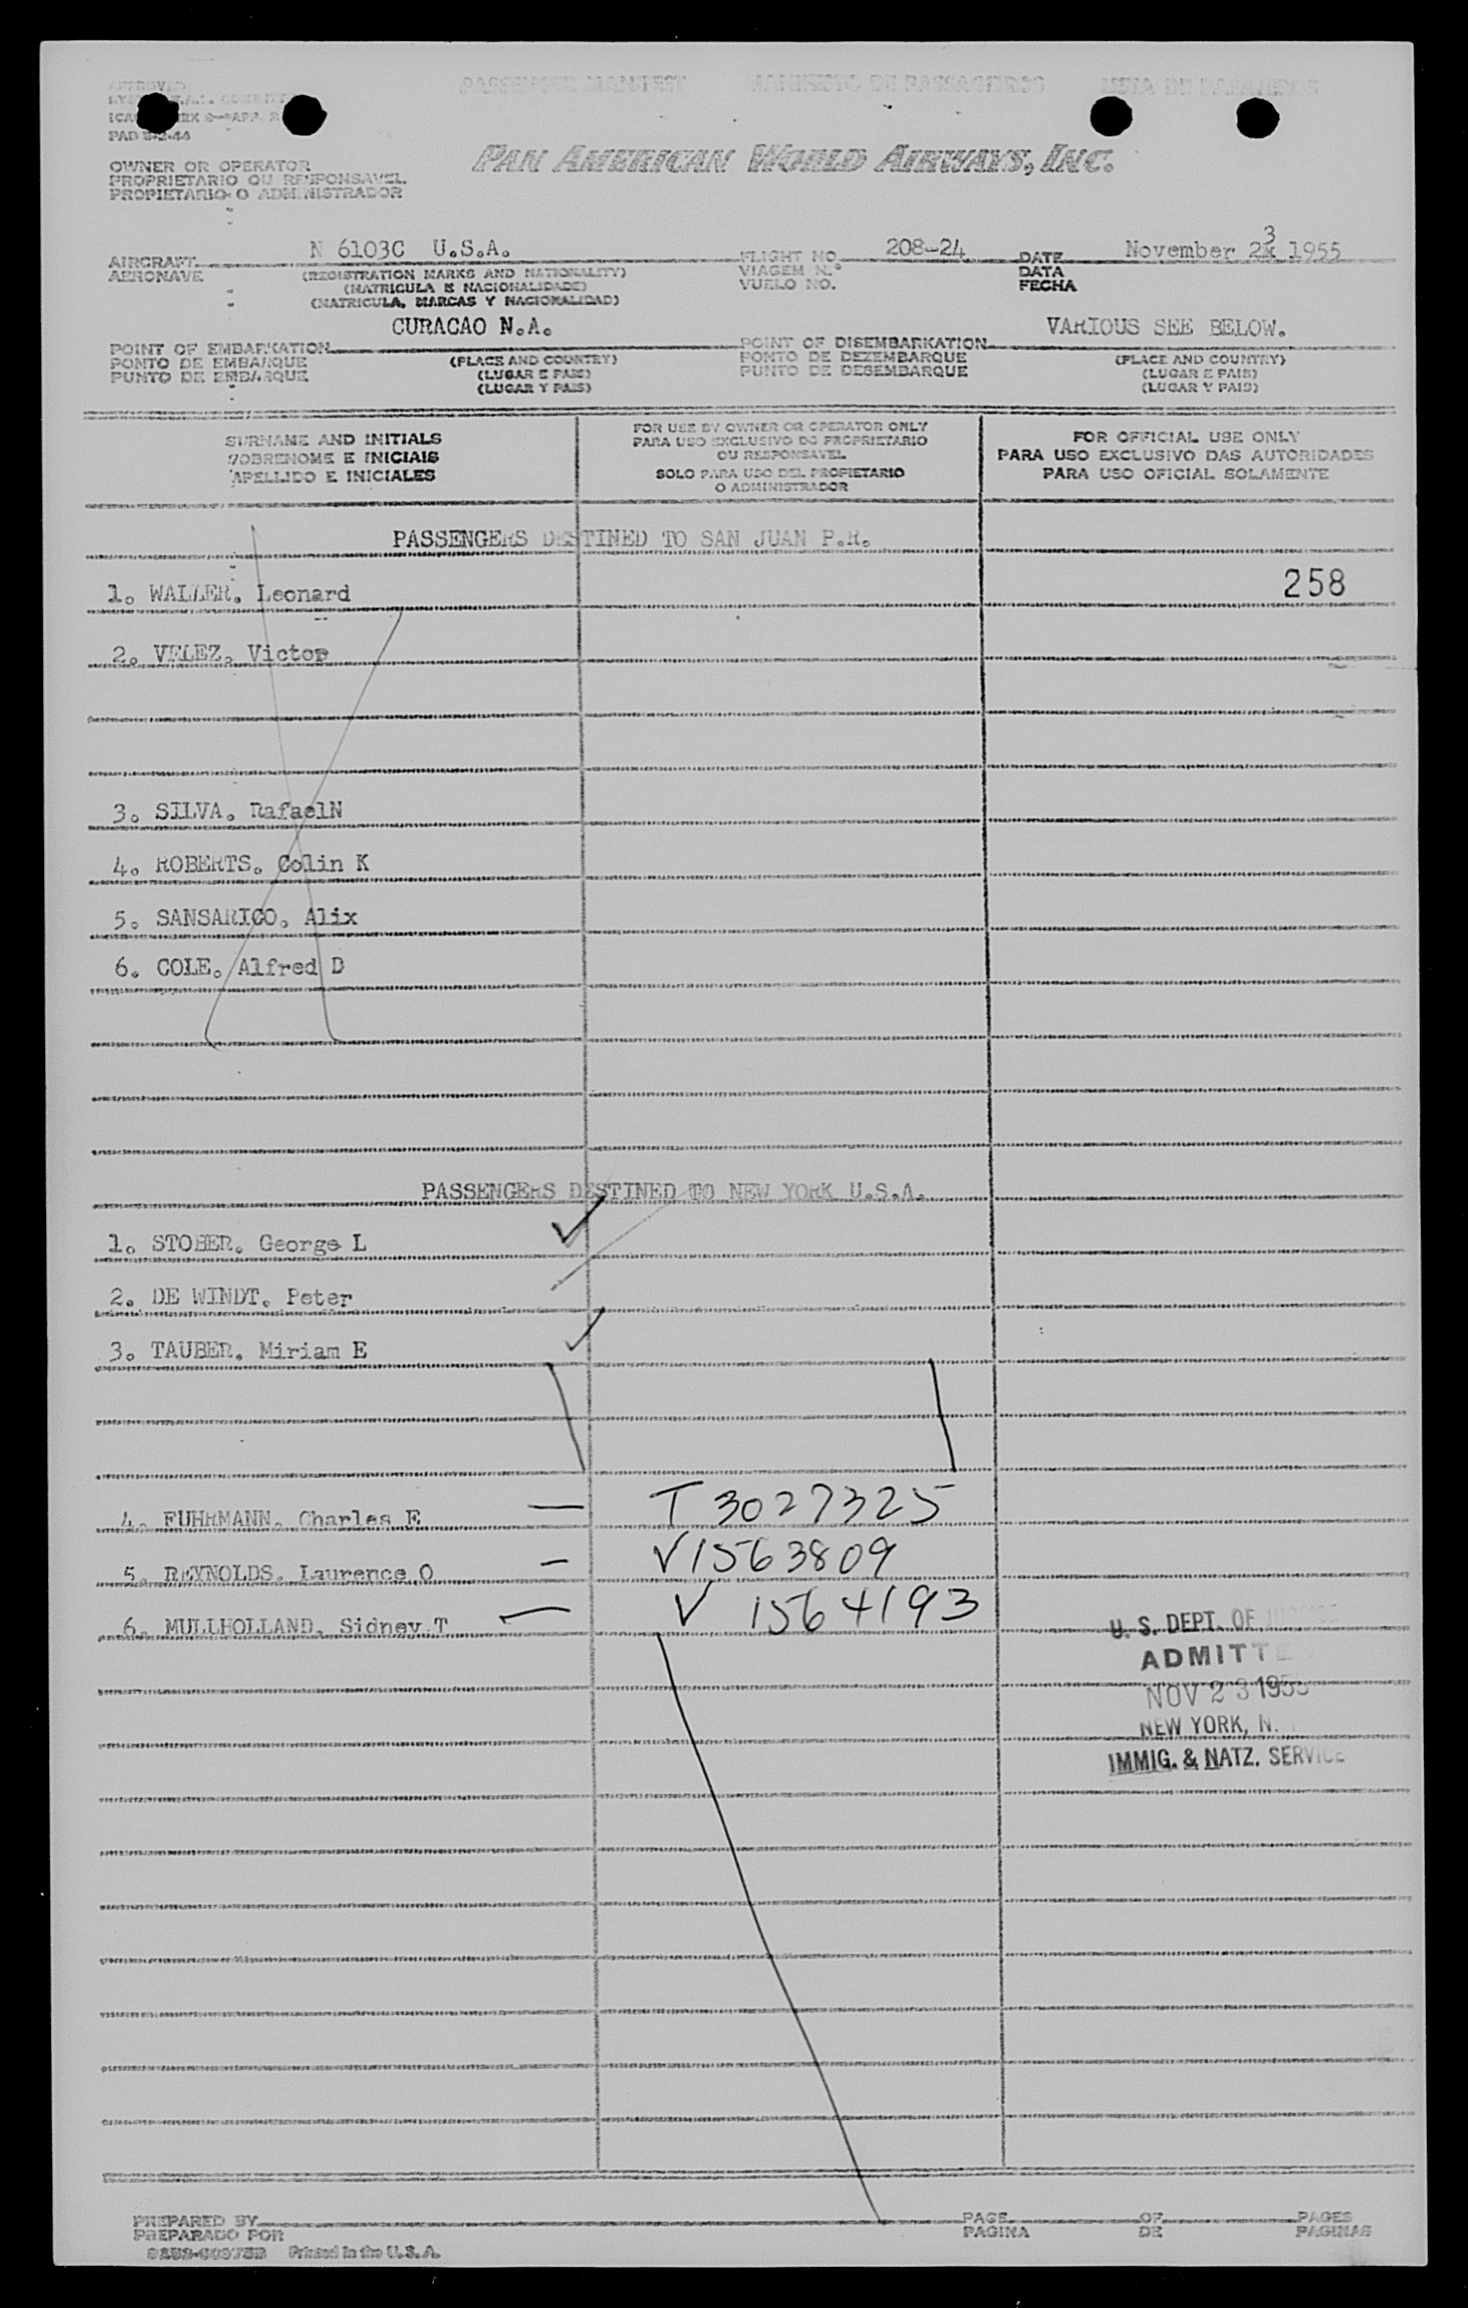 APPROVED
PAD 8-2-44
PASSENGER MANIFEST MANIFESTO DE PASSAGEIROS LISTA DE PASAJEROS
PAN AMERICAN WORLD AIRWAYS, INC.
OWNER OR OPERATOR
PROPRIETARIO OU RESPONSAVEL
PROPIETARIO O ADMINISTRADOR
AIRCRAFT N 6103C U.S.A. FLIGHT NO. 208-24 DATE November 23 1955
AERONAVE (REGISTRATION MARKS AND NATIONALITY) VIAGEM N.º DATA
(MATRICULA E NACIONALIDADE) VUELO NO. FECHA
(MATRICULA, MARCAS Y NACIONALIDAD)
CURACAO N.A. VARIOUS SEE BELOW.
POINT OF EMBARKATION POINT OF DISEMBARKATION
PONTO DE EMBARQUE (PLACE AND COUNTRY) PONTO DE DEZEMBARQUE (PLACE AND COUNTRY)
PUNTO DE EMBARQUE (LUGAR E PAIS) PUNTO DE DESEMBARQUE (LUGAR E PAIS)
(LUGAR Y PAIS) (LUGAR Y PAIS)
SURNAME AND INITIALS
SOBRENOME E INICIAIS
APELLIDO E INICIALES
FOR USE BY OWNER OR OPERATOR ONLY
PARA USO EXCLUSIVO DO PROPRIETARIO
OU RESPONSAVEL
SOLO PARA USO DEL PROPIETARIO
O ADMINISTRADOR
FOR OFFICIAL USE ONLY
PARA USO EXCLUSIVO DAS AUTORIDADES
PARA USO OFICIAL SOLAMENTE
PASSENGERS DESTINED TO SAN JUAN P.R.
1. WALZER. Leonard 258
2. VELEZ, Victor
3. SILVA. RafaelN
4. ROBERTS. Colin K
5. SANSARICO, Alix
6. COLE. Alfred D
PASSENGERS DESTINED TO NEW YORK U.S.A.
1. STOBER. George L
2. DE WINDT. Peter
3. TAUBER. Miriam E
4. FUHRMANN. Charles E — T 3027325
5. REYNOLDS. Laurence O — V1563809
6. MULLHOLLAND. Sidney T — V 1564193
U. S. DEPT. OF JUSTICE
ADMITTE
NOV 23 1955
NEW YORK, N.
IMMIG. & NATZ. SERVICE
PREPARED BY PAGE OF PAGES
PREPARADO POR PAGINA DE PAGINAS
Printed in the U.S.A.